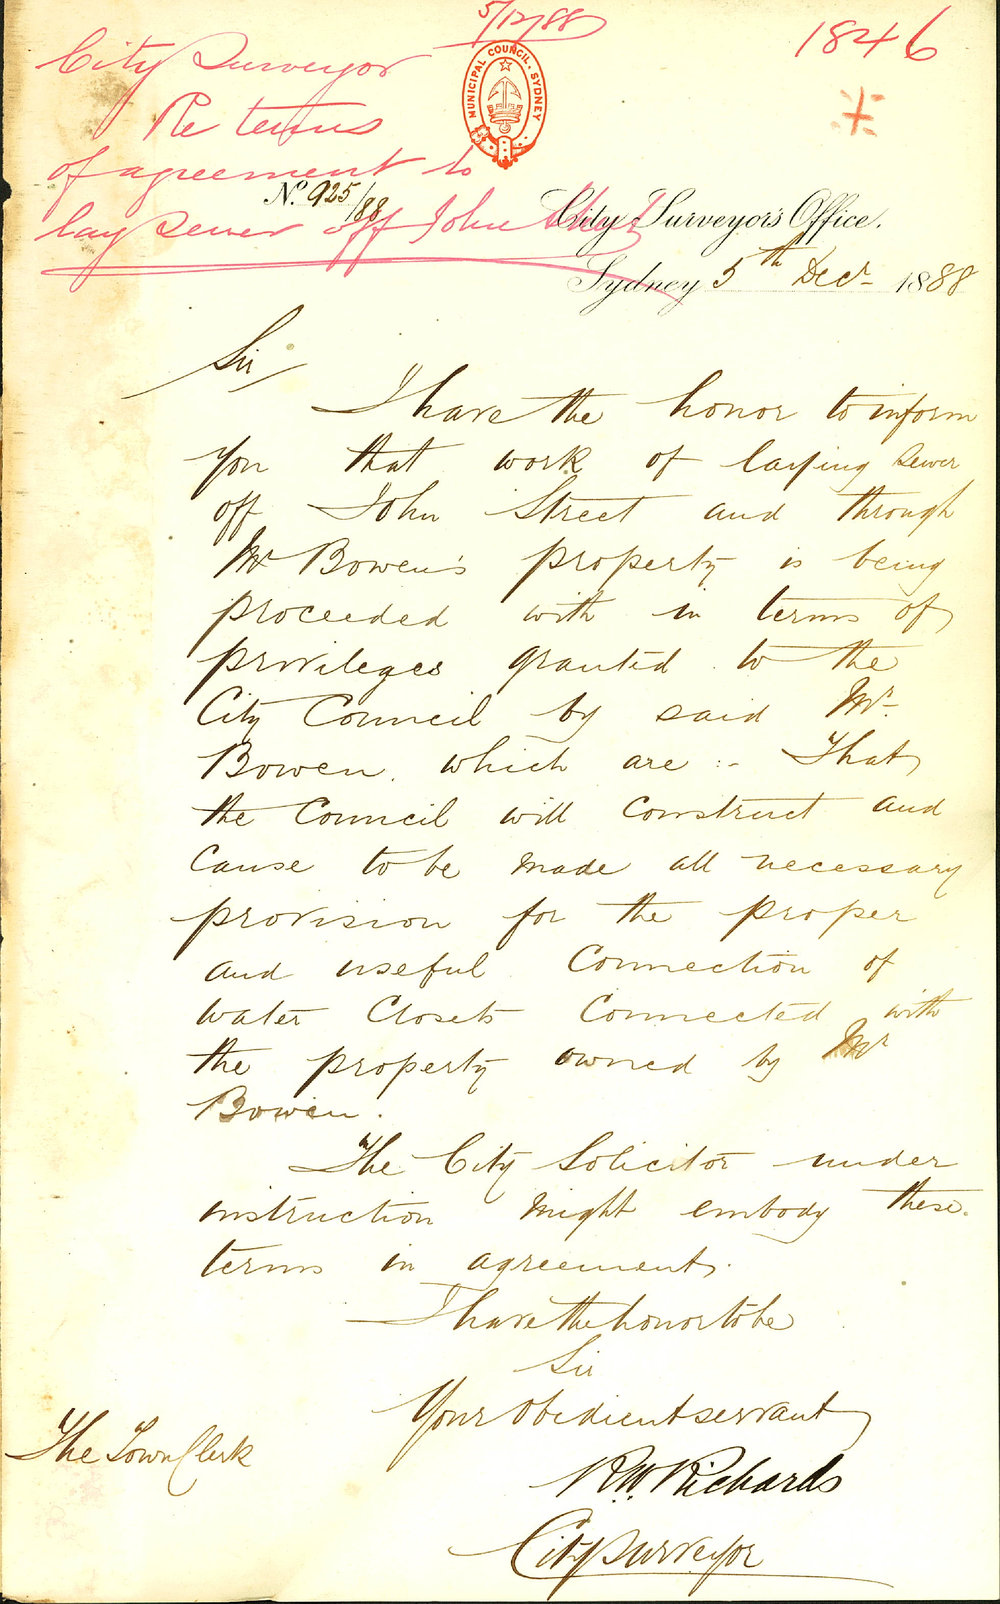 5/12/88
1846
City Surveyor
Re terms
of agreement to
lay sewer off John Street
MUNICIPAL COUNCIL. SYDNEY
No. 925/88
City Surveyor's Office.
Sydney 5th Decr 1888
Sir
I have the honor to inform
you that work of laying sewer
off John Street and through
Mr Bowen's property is being
proceeded with in terms of
privileges granted to the
City Council by said Mr.
Bowen. which are :- That
the Council will construct and
cause to be made all necessary
provision for the proper
and useful connection of
water closets connected with
the property owned by Mr
Bowen.
The City Solicitor under
instruction might embody these
terms in agreement.
I have the honor to be
Sir
Your obedient servant
R.W. Richards
City Surveyor
The Town Clerk